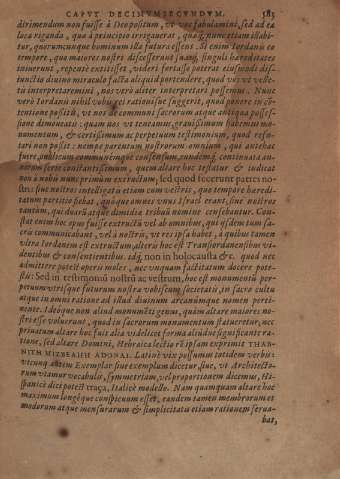 CAPVT DECIMVMSECVNDVM. 583
dirimendum non fuisse à Deo positum, vt vos fabulamini, sed ad ea
loca riganda, quo à principio irrigauerat, quoq́; nunc etiam illabi-
tur, quorumcunque hominum illa futura essent. Si enim Iordanis eo
tempore, quo maiores nostri discesserunt suasq́; singuli hæreditates
inierunt, repente extitisset, videri fortasse poterat eiusmodi dis-
iunctio diuino miraculo facta aliquid portendere, quod vos vt velle-
tis interpretaremini, nos verò aliter interpretari possemus. Nunc
verò Iordanis nihil vobis rationis suggerit, quod ponere in con-
tentione possitis, vt nos de communi sacrorum atque antiqua posses-
sione dimoueatis: quam nos vt teneamus, grauissimum habemus mo-
numentum, & certissimum ac perpetuum testimonium, quod refu-
tari non possit: nempe parentum nostrorum omnium, qui antehac
fuere, publicum communemque consensum, eundemq́; continuata an-
norum serie constantissimum, quem altare hoc testatur & indicat
non à nobis nunc primum extructum, sed quod fecerunt patres no-
stri: siue nostros intelligatis etiam cum vestris, quo tempore hæredi-
tatum partitio fiebat, quique omnes vnus Israel erant, siue nostros
tantùm, qui duarum atque dimidiæ tribuū nomine censebantur. Con-
stat enim hoc opus fuisse extructū vel ab omnibus, qui ijsdem tum sa-
cris communicabant, vel à nostris, vt res ipsa habet, à quibus tamen
vltra Iordanem est extructum, alteris hoc est Transiordanensibus vi-
dentibus & consentientibus. idq́; non in holocausta &c. quod nec
admittere potest operis moles, nec vnquam factitatum docere pote-
stis: Sed in testimoniū nostrū ac vestrum, hoc est monumentū per-
petuum vtrisque futurum nostræ vobiscum societatis, in sacro cultu
atque in omni ratione ad illud diuinum arcanumque nomen perti-
nente. Ideóque non aliud monumēti genus, quàm altare maiores no-
stri esse voluerunt, quod in sacrorum monumentum statueretur, nec
priuatum altare hoc fuit alia videlicet forma aliudve significante ra-
tione, sed altare Domini, Hebraica lectio rē ipsam exprimit THAB-
NITH MIZBEAHH ADONAI. Latinè vix possumus totidem verbis
vtcunq́; autem Exemplar siue exemplum dicetur, siue, vt Architecto-
rum vtamur vocabulis, symmetriam, vel proportionem dicemus, Hi-
spanicè dici potest traça, Italicè modello. Nam quamquam altare hoc
maximum longéque conspicuum esset, eandem tamen membrorum et
modorum atque mensurarum & simplicitatis etiam rationem serua-
bat,